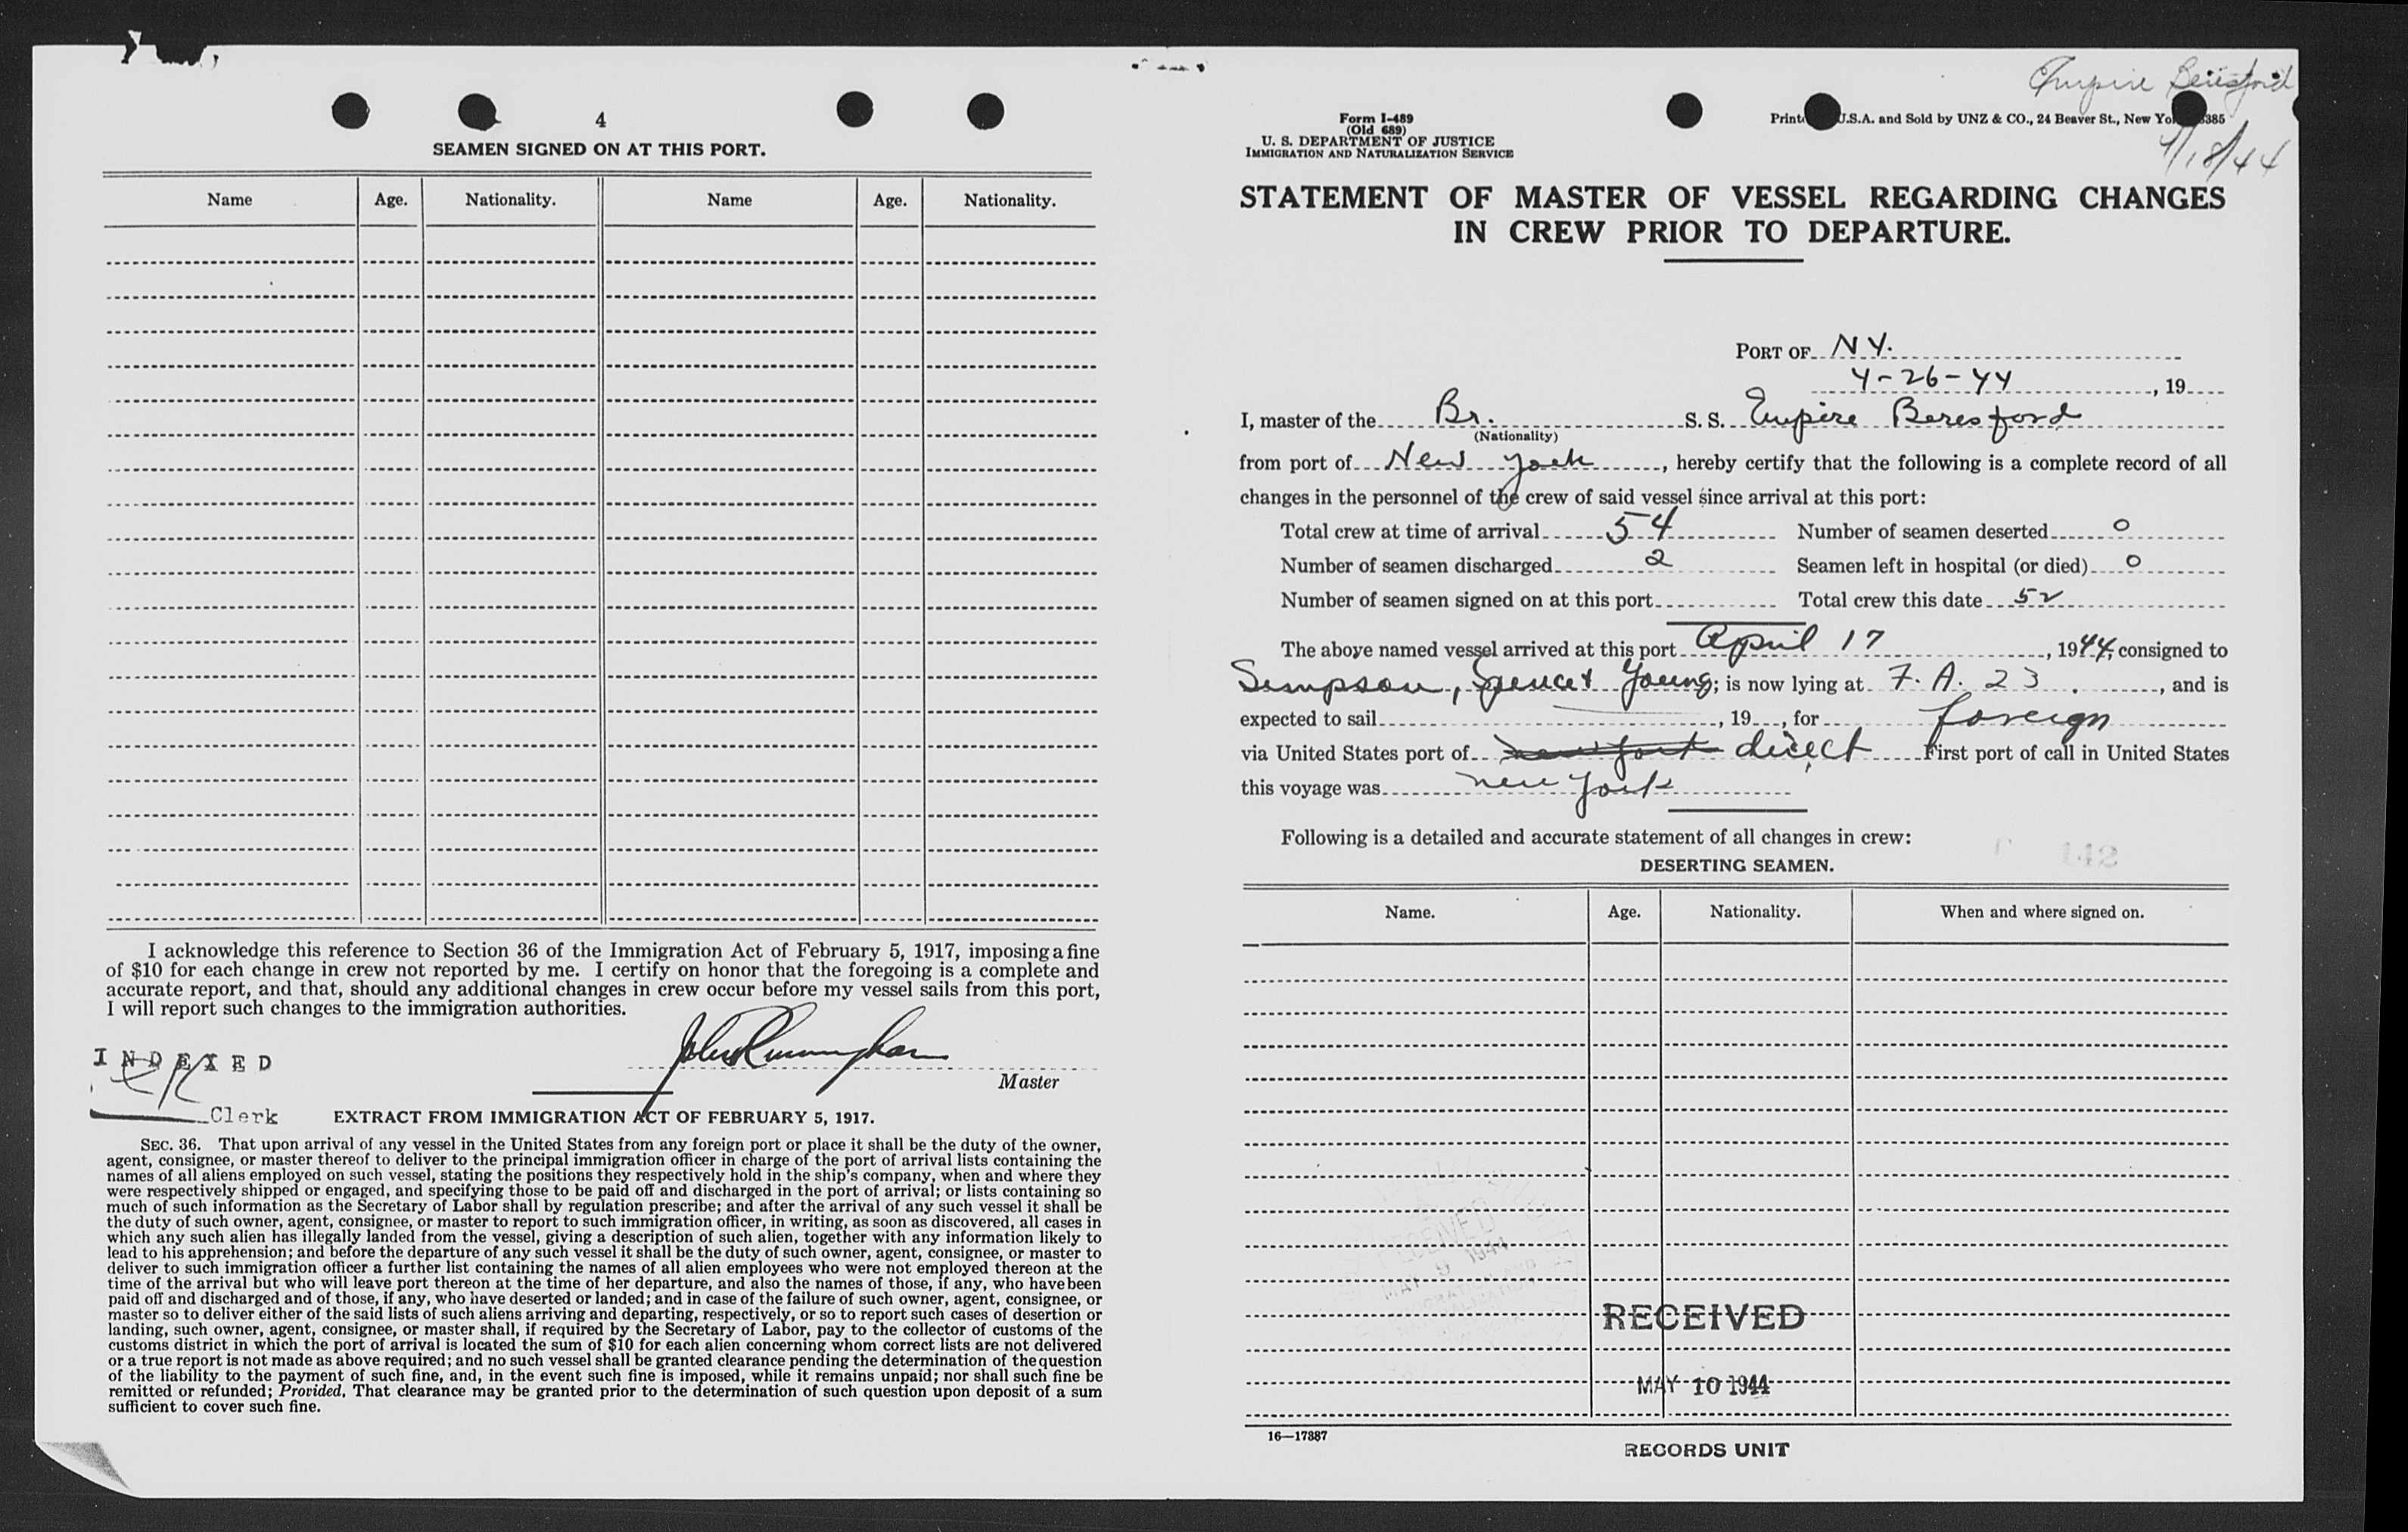 4
SEAMEN SIGNED ON AT THIS PORT.
Name Age. Nationality. Name Age. Nationality.
I acknowledge this reference to Section 36 of the Immigration Act of February 5, 1917, imposing a fine
of $10 for each change in crew not reported by me. I certify on honor that the foregoing is a complete and
accurate report, and that, should any additional changes in crew occur before my vessel sails from this port,
I will report such changes to the immigration authorities.
INDEXED
Master
Clerk
EXTRACT FROM IMMIGRATION ACT OF FEBRUARY 5, 1917.
SEC. 36. That upon arrival of any vessel in the United States from any foreign port or place it shall be the duty of the owner,
agent, consignee, or master thereof to deliver to the principal immigration officer in charge of the port of arrival lists containing the
names of all aliens employed on such vessel, stating the positions they respectively hold in the ship's company, when and where they
were respectively shipped or engaged, and specifying those to be paid off and discharged in the port of arrival; or lists containing so
much of such information as the Secretary of Labor shall by regulation prescribe; and after the arrival of any such vessel it shall be
the duty of such owner, agent, consignee, or master to report to such immigration officer, in writing, as soon as discovered, all cases in
which any such alien has illegally landed from the vessel, giving a description of such alien, together with any information likely to
lead to his apprehension; and before the departure of any such vessel it shall be the duty of such owner, agent, consignee, or master to
deliver to such immigration officer a further list containing the names of all alien employees who were not employed thereon at the
time of the arrival but who will leave port thereon at the time of her departure, and also the names of those, if any, who have been
paid off and discharged and of those, if any, who have deserted or landed; and in case of the failure of such owner, agent, consignee, or
master so to deliver either of the said lists of such aliens arriving and departing, respectively, or so to report such cases of desertion or
landing, such owner, agent, consignee, or master shall, if required by the Secretary of Labor, pay to the collector of customs of the
customs district in which the port of arrival is located the sum of $10 for each alien concerning whom correct lists are not delivered
or a true report is not made as above required; and no such vessel shall be granted clearance pending the determination of the question
of the liability to the payment of such fine, and, in the event such fine is imposed, while it remains unpaid; nor shall such fine be
remitted or refunded; Provided, That clearance may be granted prior to the determination of such question upon deposit of a sum
sufficient to cover such fine.
Empire Beresford
4/18/44
Form I-489
(Old 689)
U. S. DEPARTMENT OF JUSTICE
IMMIGRATION AND NATURALIZATION SERVICE
U.S.A. and Sold by UNZ & CO., 24 Beaver St., New 385
STATEMENT OF MASTER OF VESSEL REGARDING CHANGES
IN CREW PRIOR TO DEPARTURE.
PORT OF N.Y.
4-26-44, 19
I, master of the Br. S. S. Empire Beresford
(Nationality)
from port of New York, hereby certify that the following is a complete record of all
changes in the personnel of the crew of said vessel since arrival at this port:
Total crew at time of arrival 54 Number of seamen deserted 0
Number of seamen discharged 2 Seamen left in hospital (or died) 0
Number of seamen signed on at this port Total crew this date 52
The above named vessel arrived at this port April 17, 1944, consigned to
Simpson, Spence & Young; is now lying at F. A. 23, and is
expected to sail, 19, for foreign
via United States port of New York direct First port of call in United States
this voyage was New York
Following is a detailed and accurate statement of all changes in crew:
DESERTING SEAMEN.
Name. Age. Nationality. When and where signed on.
RECEIVED
MAY 9 1944
RECEIVED
MAY 10 1944
16—17887
RECORDS UNIT